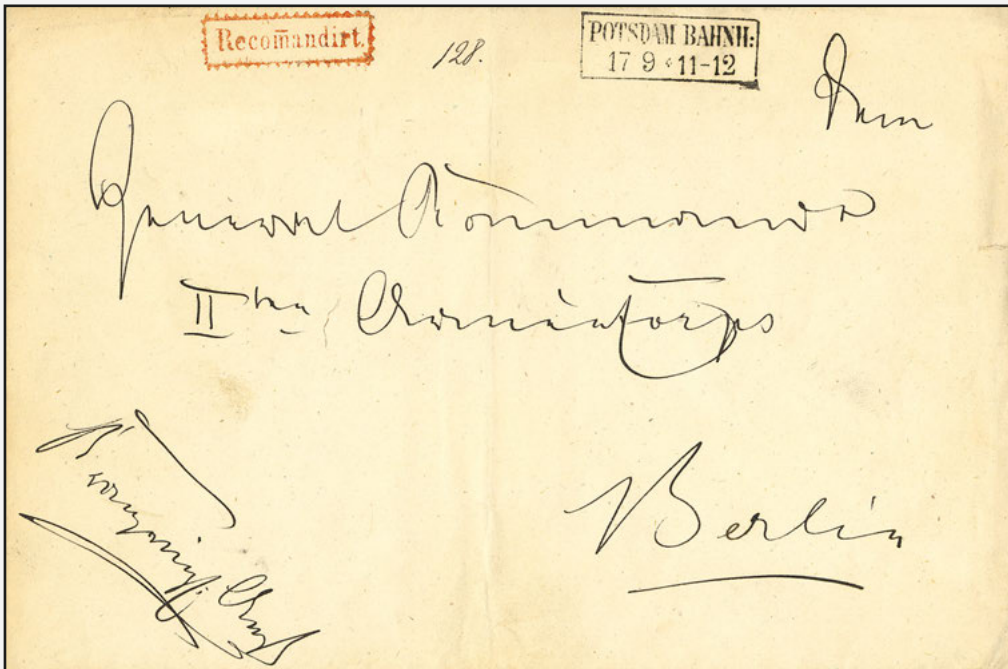 Recom̄andirt.
128.
POTSDAM BAHNH:
17 9 * 11-12
Dem
General Kommando
IIten Armeekorps
Berlin